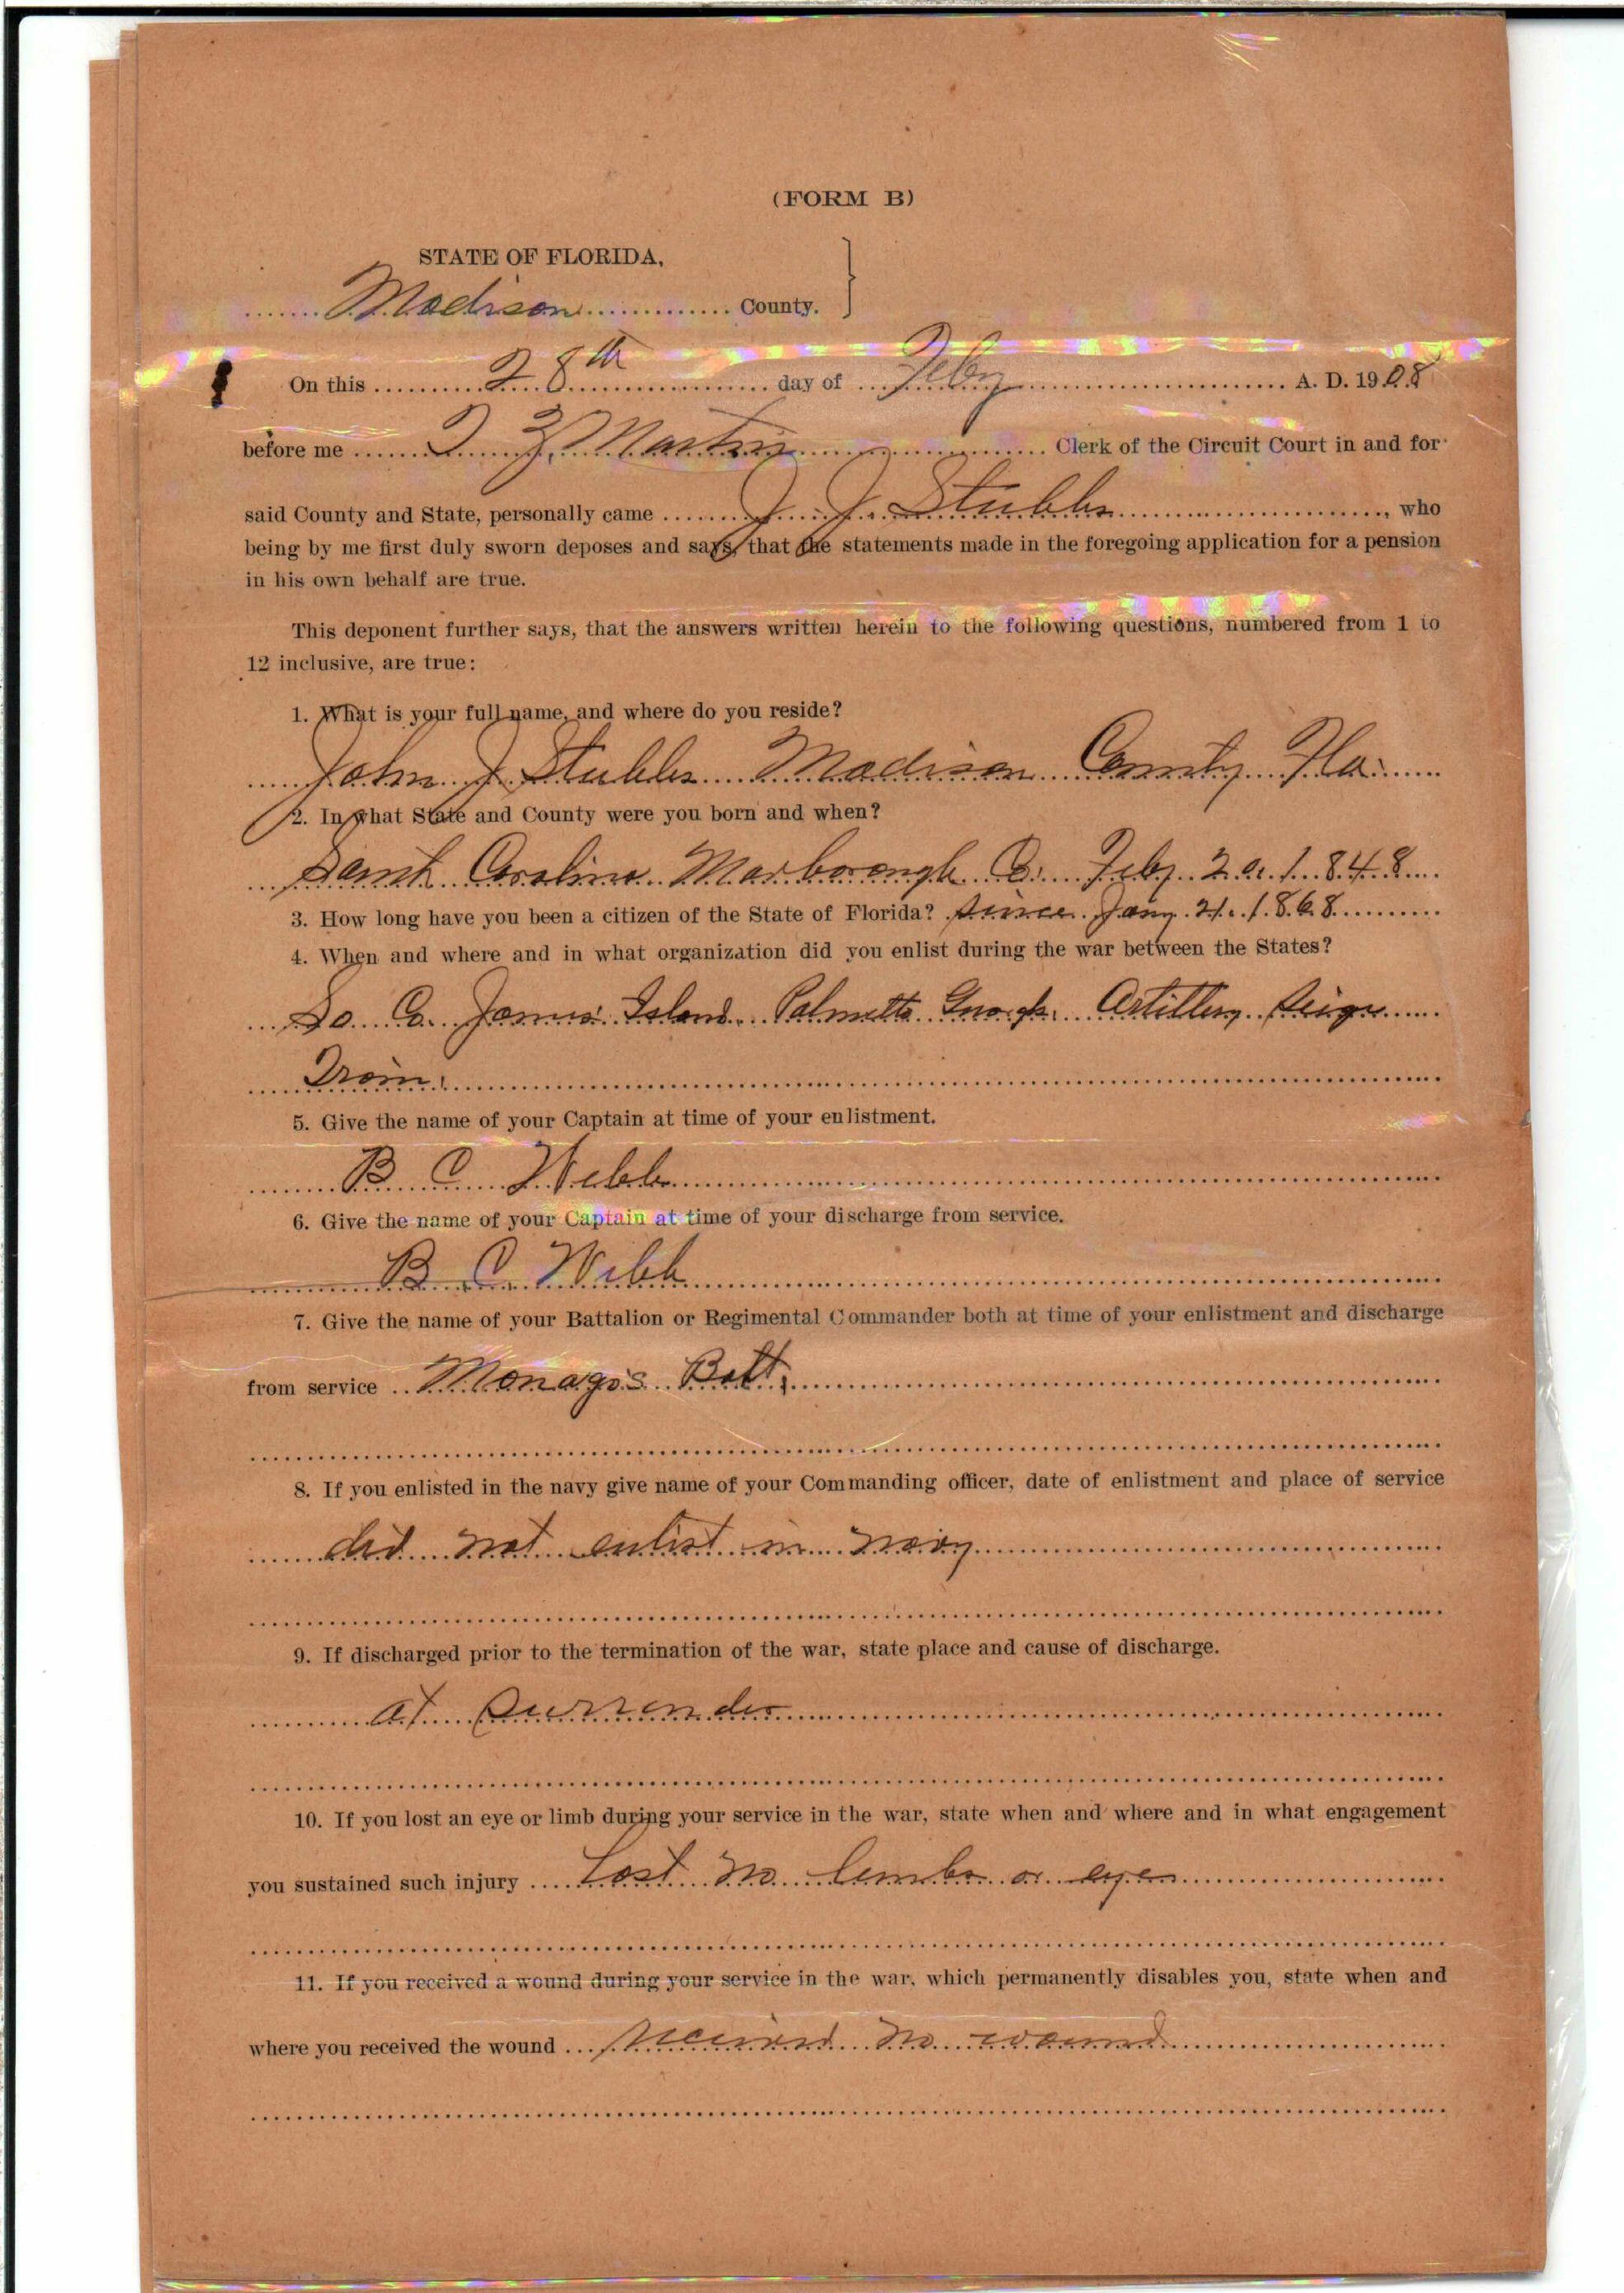 (FORM B)
STATE OF FLORIDA,
Madison County.
On this 28th day of Feby A. D. 1908
before me Martin Clerk of the Circuit Court in and for
said County and State, personally came J. J. Stubbs, who
being by me first duly sworn deposes and says, that the statements made in the foregoing application for a pension
in his own behalf are true.
This deponent further says, that the answers written herein to the following questions, numbered from 1 to
12 inclusive, are true:
1. What is your full name, and where do you reside?
John J Stubbs Madison County Fla.
2. In what State and County were you born and when?
South Carolina Marborough Co. Feby 1848
3. How long have you been a citizen of the State of Florida? since Jany 21. 1868
4. When and where and in what organization did you enlist during the war between the States?
So. Ca. James Island Palmetto Artillery Seige
Train.
5. Give the name of your Captain at time of your enlistment.
B C Webb
6. Give the name of your Captain at time of your discharge from service.
B. C. Webb
7. Give the name of your Battalion or Regimental Commander both at time of your enlistment and discharge
from service Batt.
8. If you enlisted in the navy give name of your Commanding officer, date of enlistment and place of service
did not enlist in navy
9. If discharged prior to the termination of the war, state place and cause of discharge.
at Surrender
10. If you lost an eye or limb during your service in the war, state when and where and in what engagement
you sustained such injury Lost no lembs or eyes
11. If you received a wound during your service in the war, which permanently disables you, state when and
where you received the wound received no wound